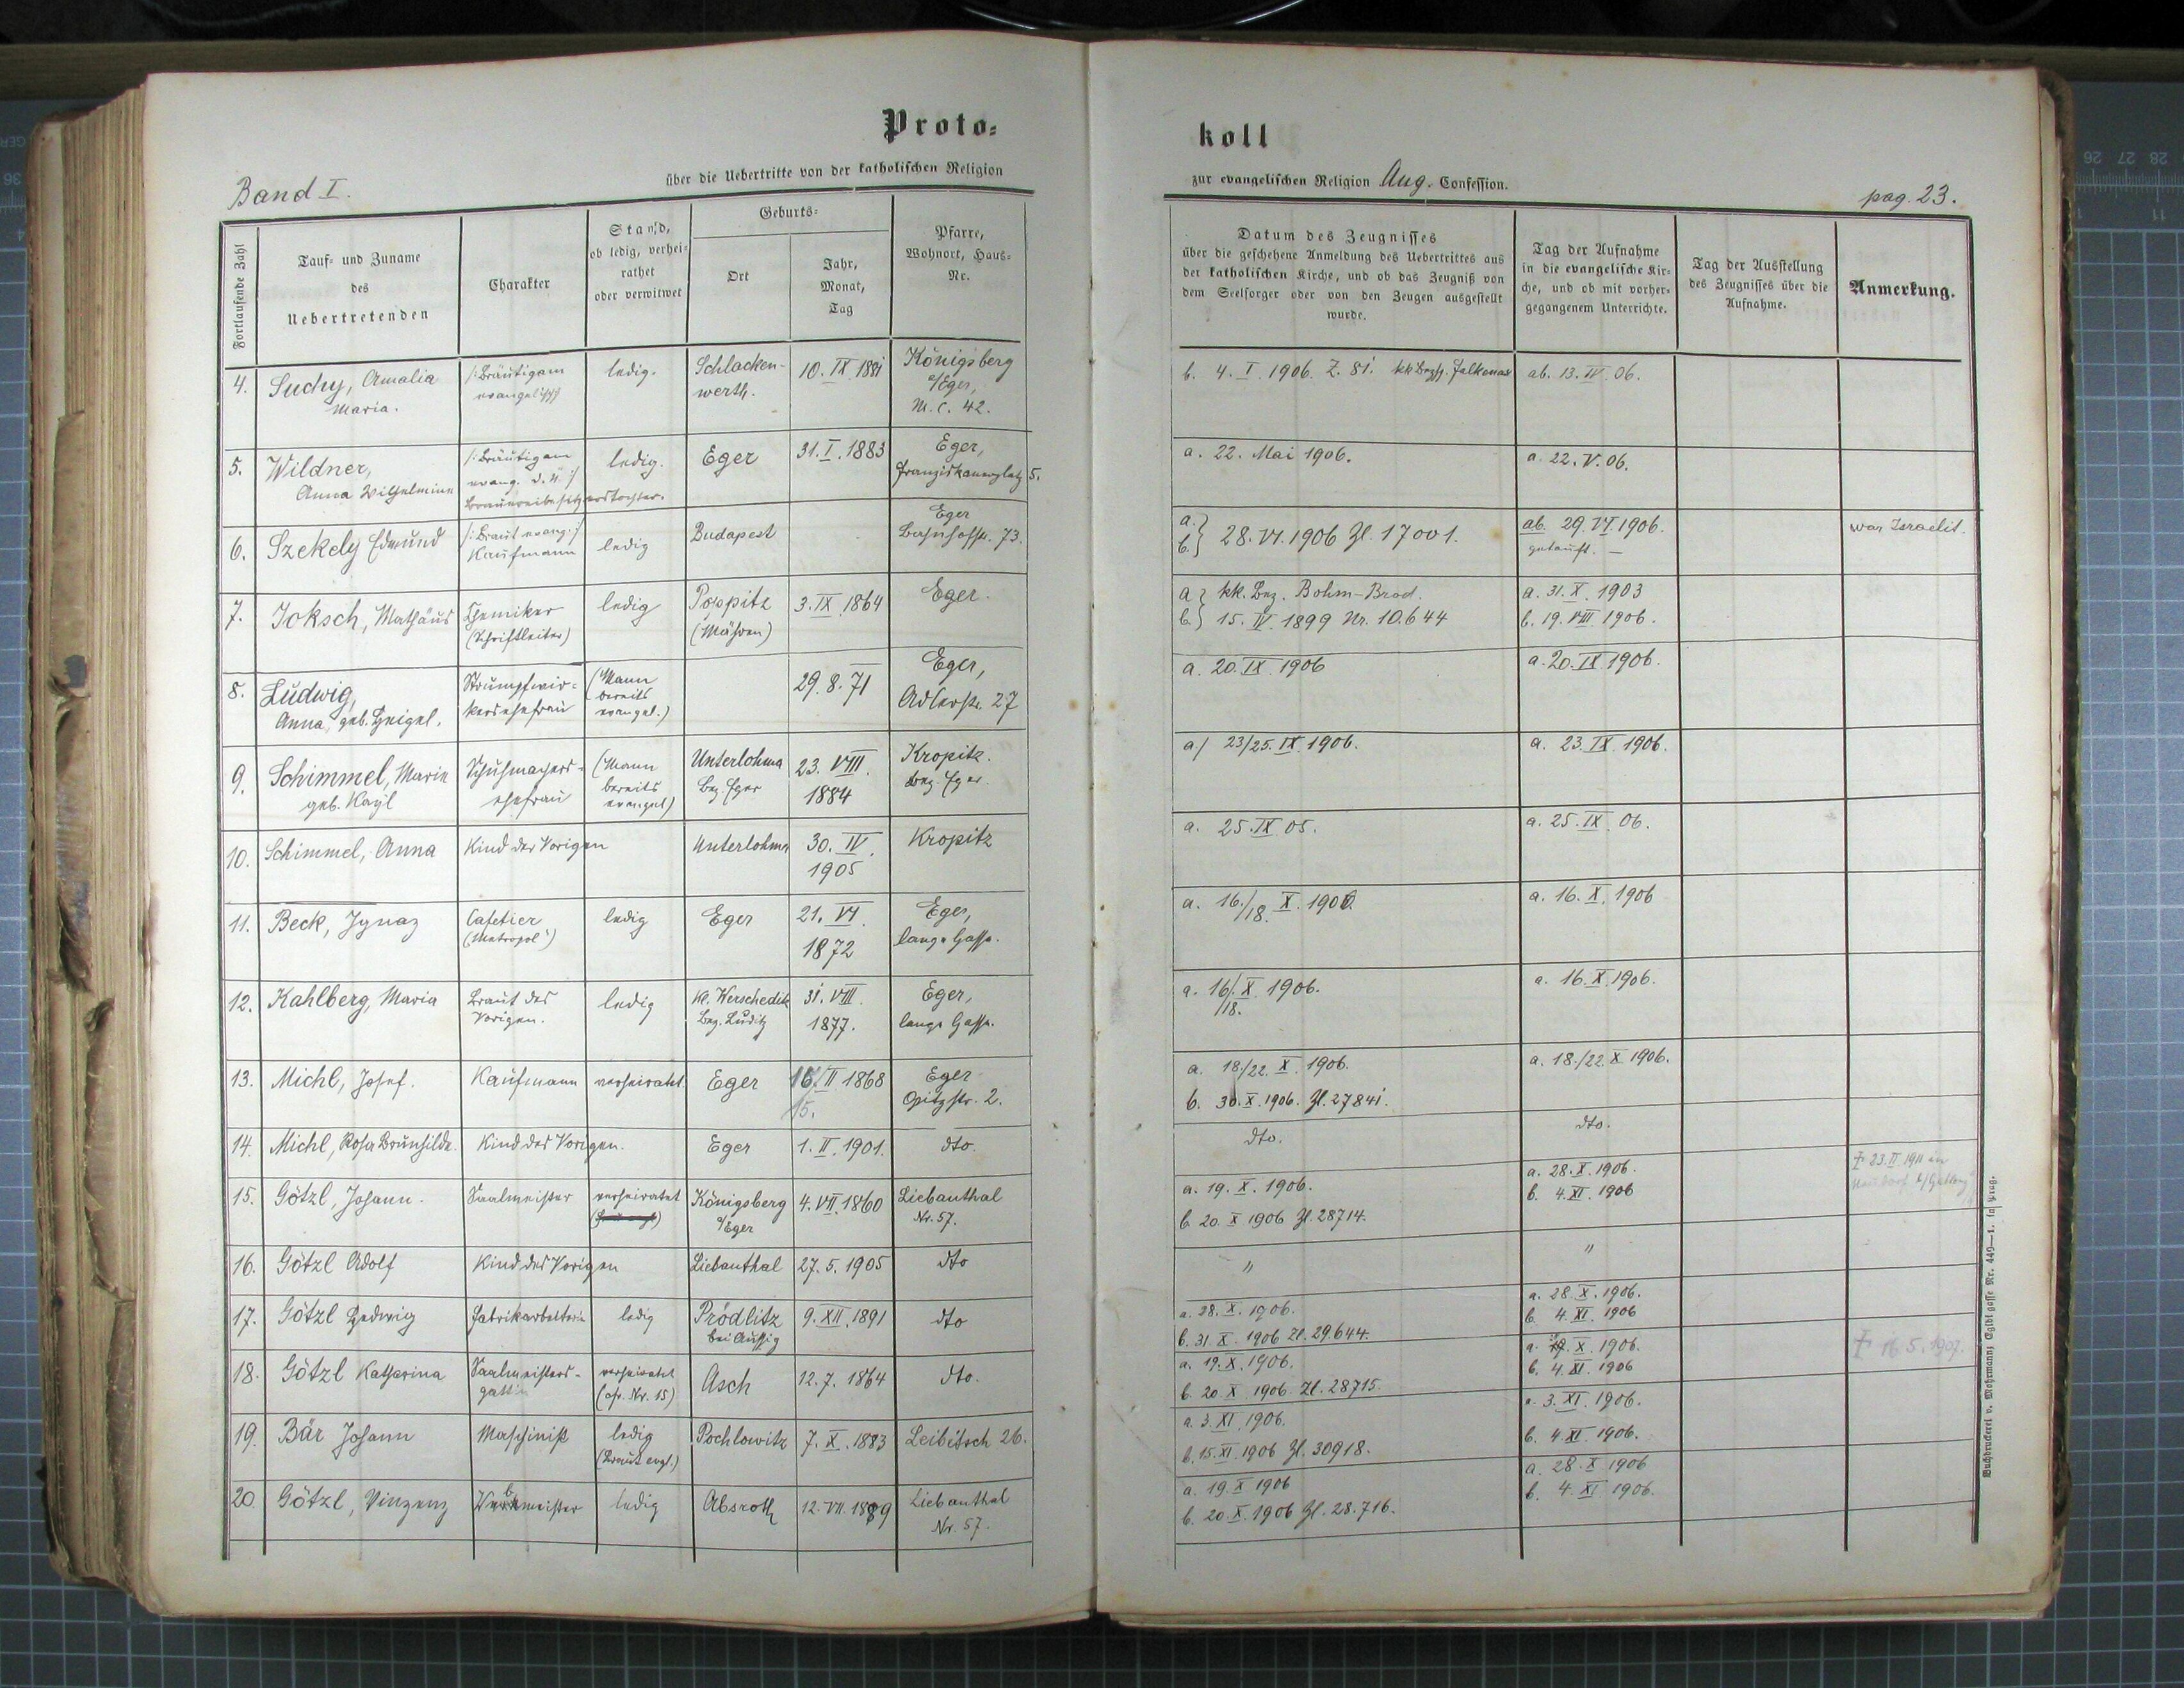 Proto=
koll
über die Uebertritte von der katholischen Religion
zur evangelischen Religion Aug. Confession.
Band I.
pag. 23.
Fortlaufende Zahl
Tauf= und Zuname
des
Uebertretenden
Charakter
Stand,
ob ledig, verhei=
rathet
oder verwitwet
Geburts=
Ort
Jahr,
Monat,
Tag
Pfarre,
Wohnort, Haus=
Nr.
Datum des Zeugnisses
über die geschehene Anmeldung des Uebertrittes aus
der katholischen Kirche, und ob das Zeugniß von
dem Seelsorger oder von den Zeugen ausgestellt
wurde.
Tag der Aufnahme
in die evangelische Kir=
che, und ob mit vorher=
gegangenem Unterrichte.
Tag der Ausstellung
des Zeugnisses über die
Aufnahme.
Anmerkung.
4. Suchy, Amalia
Maria.
/:Bräutigam
evangelisch
ledig.
Schlacken-
werth.
10. IX. 1881
Königsberg
a/Eger,
M. C. 42.
b. 4. I. 1906. Z. 81. kk Bezhp. Falkenau
ab. 13. IV. 06.
5. Wildner,
Anna Wilhelmine
/:Bräutigam
evang. :/
Brauereibesitzerstochter.
ledig.
Eger
31. I. 1883
Eger,
Franziskanerplatz 5.
a. 22. Mai 1906.
a. 22. V. 06.
6. Szekely Edmund
/:Braut evang.:/
Kaufmann
ledig
Budapest
Eger
Bahnhofstr. 73.
a.
b. } 28. VI. 1906 Zl. 17001.
ab. 29. VI. 1906.
getauft. —
war Israelit.
7. Joksch, Mathäus
Chemiker
(Schriftleiter)
ledig
Poppitz
(Mähren)
3. IX. 1864
Eger.
a } kk. Bez. Böhm-Brod.
b. } 15. IV. 1899 Nr. 10.644
a. 31. X. 1903
b. 19. VIII. 1906.
8. Ludwig,
Anna, geb. Geigel.
Strumpfwir=
kersehefrau
(Mann
bereits
evangel.)
29. 8. 71
Eger,
Adlerstr. 27
a. 20. IX. 1906
a. 20. IX. 1906.
9. Schimmel, Marie
geb. Kayl
Schuhmachers-
ehefrau
(Mann
bereits
evangel)
Unterlohma
Bez. Eger
23. VIII.
1884
Kropitz.
Bez. Eger.
a/ 23/25. IX. 1906.
a. 23. IX. 1906.
10. Schimmel, Anna
Kind der Vorigen
Unterlohma
30. IV.
1905
Kropitz
a. 25. IX. 05.
a. 25. IX. 06.
11. Beck, Ignaz
Cafetier
("Metropol")
ledig
Eger
21. VI.
1872
Eger,
lange Gasse.
a. 16./18. X. 1906.
a. 16. X. 1906
12. Kahlberg, Maria
Braut des
Vorigen.
ledig
Kl. Werscheditz
Bez. Luditz
31. VIII.
1877.
Eger,
lange Gasse.
a. 16/18. X. 1906.
a. 16. X. 1906.
13. Michl, Josef.
Kaufmann
verheiratet
Eger
16. II 1868
15.
Eger
Opitzstr. 2.
a. 18./22. X. 1906.
b. 30. X. 1906. Zl. 27841.
a. 18./22. X 1906.
14. Michl, Rosa Brunhilde.
Kind des Vorigen.
Eger
1. II. 1901.
dto.
dto.
dto.
15. Götzl, Johann.
Saalmeister
verheiratet
Königsberg
a/Eger
4. VII. 1860
Liebauthal
Nr. 57.
a. 19. X. 1906.
b. 20. X 1906 Zl. 28714.
a. 28. X. 1906.
b. 4. XI. 1906
† 23. II 1911 in
16. Götzl Adolf
Kind des Vorigen
Liebauthal
27. 5. 1905
dto
"
"
17. Götzl Hedwig
Fabrikarbeiterin
ledig
Prödlitz
bei Aussig
9. XII. 1891
dto
a. 28. X. 1906.
b. 31. X. 1906 Zl. 29.644.
a. 28. X. 1906.
b. 4. XI. 1906
18. Götzl Katharina
Saalmeisters-
gattin
verheiratet
(cfr. Nr. 15)
Asch
12. 7. 1864
dto.
a. 19. X. 1906.
b. 20. X. 1906. Zl. 28715.
a. X. 1906.
b. 4. XI. 1906
† 16. 5. 1907.
19. Bär Johann
Maschinist
ledig
(Braut evgl.)
Pochlowitz
7. X. 1883
Leibitsch 26.
a. 3. XI. 1906.
b. 15. XI. 1906 Zl. 30918.
a. 3. XI. 1906.
b. 4. XI. 1906.
20. Götzl, Vinzenz
Webmeister
ledig
Absroth
12. VII. 1889
Liebauthal
Nr. 57.
a. 19. X 1906
b. 20. X. 1906 Zl. 28.716.
a. 28. X 1906
b. 4. XI. 1906.
Buchdruckerei v. Mohrmann; Egidigasse Nr. 449—I. in Prag.